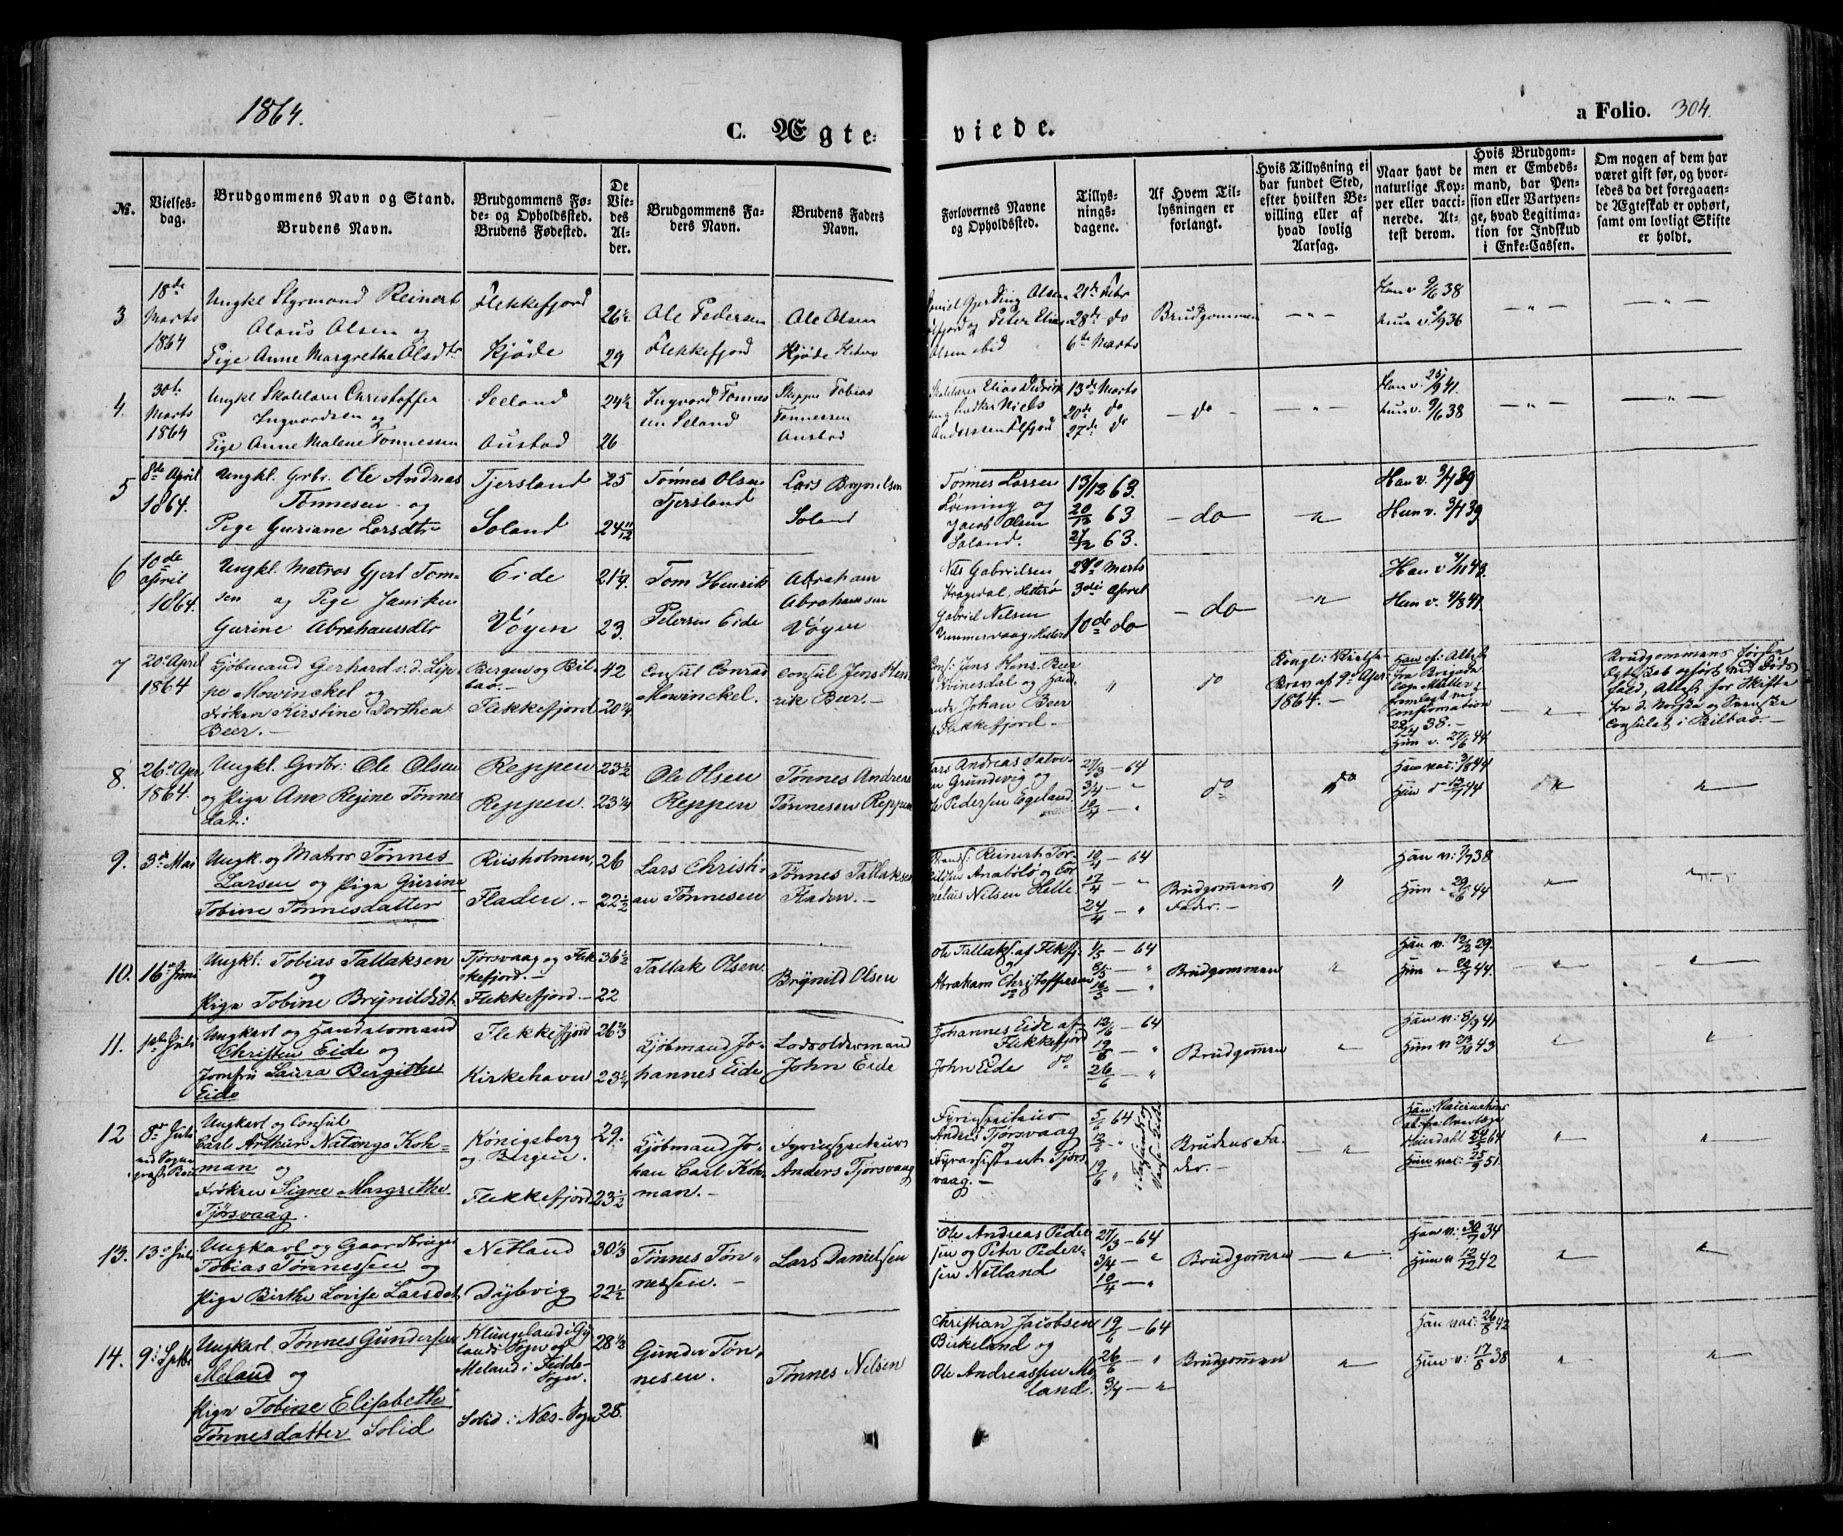 1864.
C. Ægte-
viede.
a Folio. 304.
№.
Vielses-
dag.
Brudgommens Navn og Stand.
Brudens Navn.
Brudgommens Fø-
de- og Opholdssted.
Brudens Fødested.
De
Vie-
des
Al-
der.
Brudgommens Fa-
ders Navn.
Brudens Faders
Navn.
Forlovernes Navne
og Opholdssted.
Tillys-
nings-
dagene.
Af Hvem Til-
lysningen er
forlangt.
Hvis Tillysning ei
har fundet Sted,
efter hvilken Be-
villing eller af
hvad lovlig
Aarsag.
Naar havt de
naturlige Kop-
per eller vacci-
nerede. At-
test derom.
Hvis Brudgom-
men er Embeds-
mand, har Pen-
sion eller Vartpen-
ge, hvad Legitima-
tion for Indskud
i Enke-Cassen.
Om nogen af dem har
været gift før, og hvor-
ledes da det foregaaen-
de Ægteskab er ophørt,
samt om lovligt Skifte
er holdt.
3
18de
Marts
1864
Ungkl Styrmand Reinert
Olaus Olsen og
Pige Anne Margrethe Olsdtr
Flekkefjord
Kjøde
26½
29
Ole Pedersen
Flekkefjord
Ole Olsen
Kjøde
Gjerding Olsen
og Peter Elias
Olsen ibid
21de Febr
28de do
6te Marts
Brudgommen
— " —
Han v. 9/6 38
hun v. 36
— " —
— " —
4.
30te
Marts
1864
Ungkl Skolelærer Christoffer
Ingvardsen og
Pige Anne Malene Tønnesen
Seeland
Austad
24½
26
Ingvard Tønnes
sen Seland
Skipper Tobias
Tønnessen
Austad
Skolelærer Elias
Niels
Anderssen
13de Marts
20de do
27de do
— do
— " —
Han v. 25/9 41.
hun v. 9/6 38
— " —
— " —
5
8de April
1864.
Ungkl. Grbr. Ole Andreas
Tønnesen og
Pige Guriane Larsdtr
Tjersland
Soland
25
24 11/12
Tønnes Olsen
Tjersland
Lars Brynilsen
Soland
Tønnes Larsen
Løining og
Jacob Olsen
Soland.
13/12 63.
20/12 63
27/12 63.
— do
"
Han v. 3/7 39
Hun v. 3/7 39
6
10de
April
1864.
Ungkl. Matros Gjert Tom-
sen og Pige Janiken
Gurine Abrahamsdtr
Eide
Vøyen
21 1/9.
23.
Tom Henrik
Petersen Eide
Abraham
Abrahamsen
Vøyen
Nils Gabrielsen
Kragedal, Hitterø
Gabriel Nielsen
Marts
3die April
10de do
— do
"
Han v. 4/11 43.
Hun v. 4/8 41.
7
20de April
1864
Kjøbmand Gerhard v. d. Lip-
pe Mowinckel og
Frøken Kirstine Dorthea
Beer. —
Bergen og Bil-
bao. —
Flekkefjord
42
20¼
Consul Conrad
Mowinckel.
Consul Jens Hen-
rik Beer. —
Jens Hans Beer
Kvinesdal og
Johan Beer
Flekkefjord. —
"
do
Kongl:
Brev af 9de Apr
1864. —
Han
Confirmation
38. —
Hun v. 27/6 44
"
Brudgommens første
Ægteskab ophørt ved Døds-
fald, Attest for Skifte
fra d. Norske og Svenske
Consulat i Bilbao. —
8
26de Apr
1864.
Ungkl. Grdbr. Ole Olsen
og Pige Ane Regine Tønnes
dat:
Reppen
Reppen.
23½
23¼
Ole Olsen
Reppen
Tønnes Andreas
Tønnesen Reppen
Lars Andreas
Grundevig og
Pedersen Egeland
27/3 — 64
3/4 — "
10/4 "
do
do
Han vac: 44
Hun do 44
do
"
9.
3de Mai
Ungk. og Matros Tønnes
Larsen og Pige Gurine
Tobine Tønnesdatter
Riisholmen,
Fladen. —
26
22½
Lars Christi-
an Tønnesen
Tønnes Tallaksen
Fladen. —
Reinert Tor-
Anabeløe og Cor-
nelius Nilsen Hitte
10/4 — 64
17/4 — "
24/4 — "
Brudgommens
Fader. —
"
Han v: 7/7 38
Hun " 29/6 44
"
"
10.
16de Juni
Ungkl: Tobias Tallaksen
og
Pige Tobine Brynildsdt.
Tjørsvaag og Flek-
kefjord. —
Flekkefjord. —
36½
22
Tallak Olsen
Brynild Olsen
Ole Tallaks. af Flekfj.
og
Abraham Christoffersen
do
1/5 — 64
8/5 — "
16/5 — "
Brudgommen
"
Han v: 29.
Hun " 44.
"
"
11.
1ste Juli
Ungkarl og Handelsmand
Christen Eide og
Jomfru Laura Bergithe
Eide
Flekkefjord
Kirkehavn
26⅔
23¼
Kjøbmand Jo-
hannes Eide
Lodsoldermand
John Eide
Johannes Eide af
Flekkefjord
John Eide do
12/6 — 64
19/6 — "
26/6 — "
Brudgommen
"
Han v: 8/9 41
Hun v 43
"
"
12
8de Juli
Ungkarl og Consul
Carl Arthur Koh-
man og
Frøken Signe Margrethe
Tjørsvaag.
Königsberg
og Bergen.
Flekkefjord
29.
23½
Kjøbmand Jo-
han Carl Koh-
man. —
Fyrinspecteur
Anders Tjørsvaag
Fyrinspecteur
Anders Tjørsvaag
og
Fyrassistent Tjørs-
vaag. —
5/6 64
12/6 — "
19/6 "
Brudens Fa-
der. —
"
Han: Vaccinations
64
Hun vac: 25/9 51.
"
"
13.
13de Juli
Ungkarl og Gaardbruger
Tobias Tønnessen og
Pige Birthe Lovise Larsdat
Netland
Dybvig
30⅓
22½
Tønnes Tøn-
nessen. —
Lars Danielsen
Ole Andreas Peder-
sen og Peter Peder-
sen Netland
27/3 — 64
3/4 — "
10/4 — "
Brudgommen
"
Han v: 30/7 34
Hun v 12/12 42
"
"
14.
9de Septbr
Ungkarl. Tønnes Gundersen
Meland og
Pige Tobine Elisabeth
Tønnesdatter Solid
Klungeland i Gy-
lands Sogn og
Meland i Fedde-
Sogn.
Solid i Næs-Sogn
28⅓
28.
Gunder Tøn-
nesen.
Tønnes Nilsen
Christian Jacobsen
Birkeland og
Ole Andreassen Me-
land.
19/6 — 64
26/6 — "
3/7 — "
Brudgommen
"
Han vac: 26/8 42
Hun v: 17/8 38
"
"